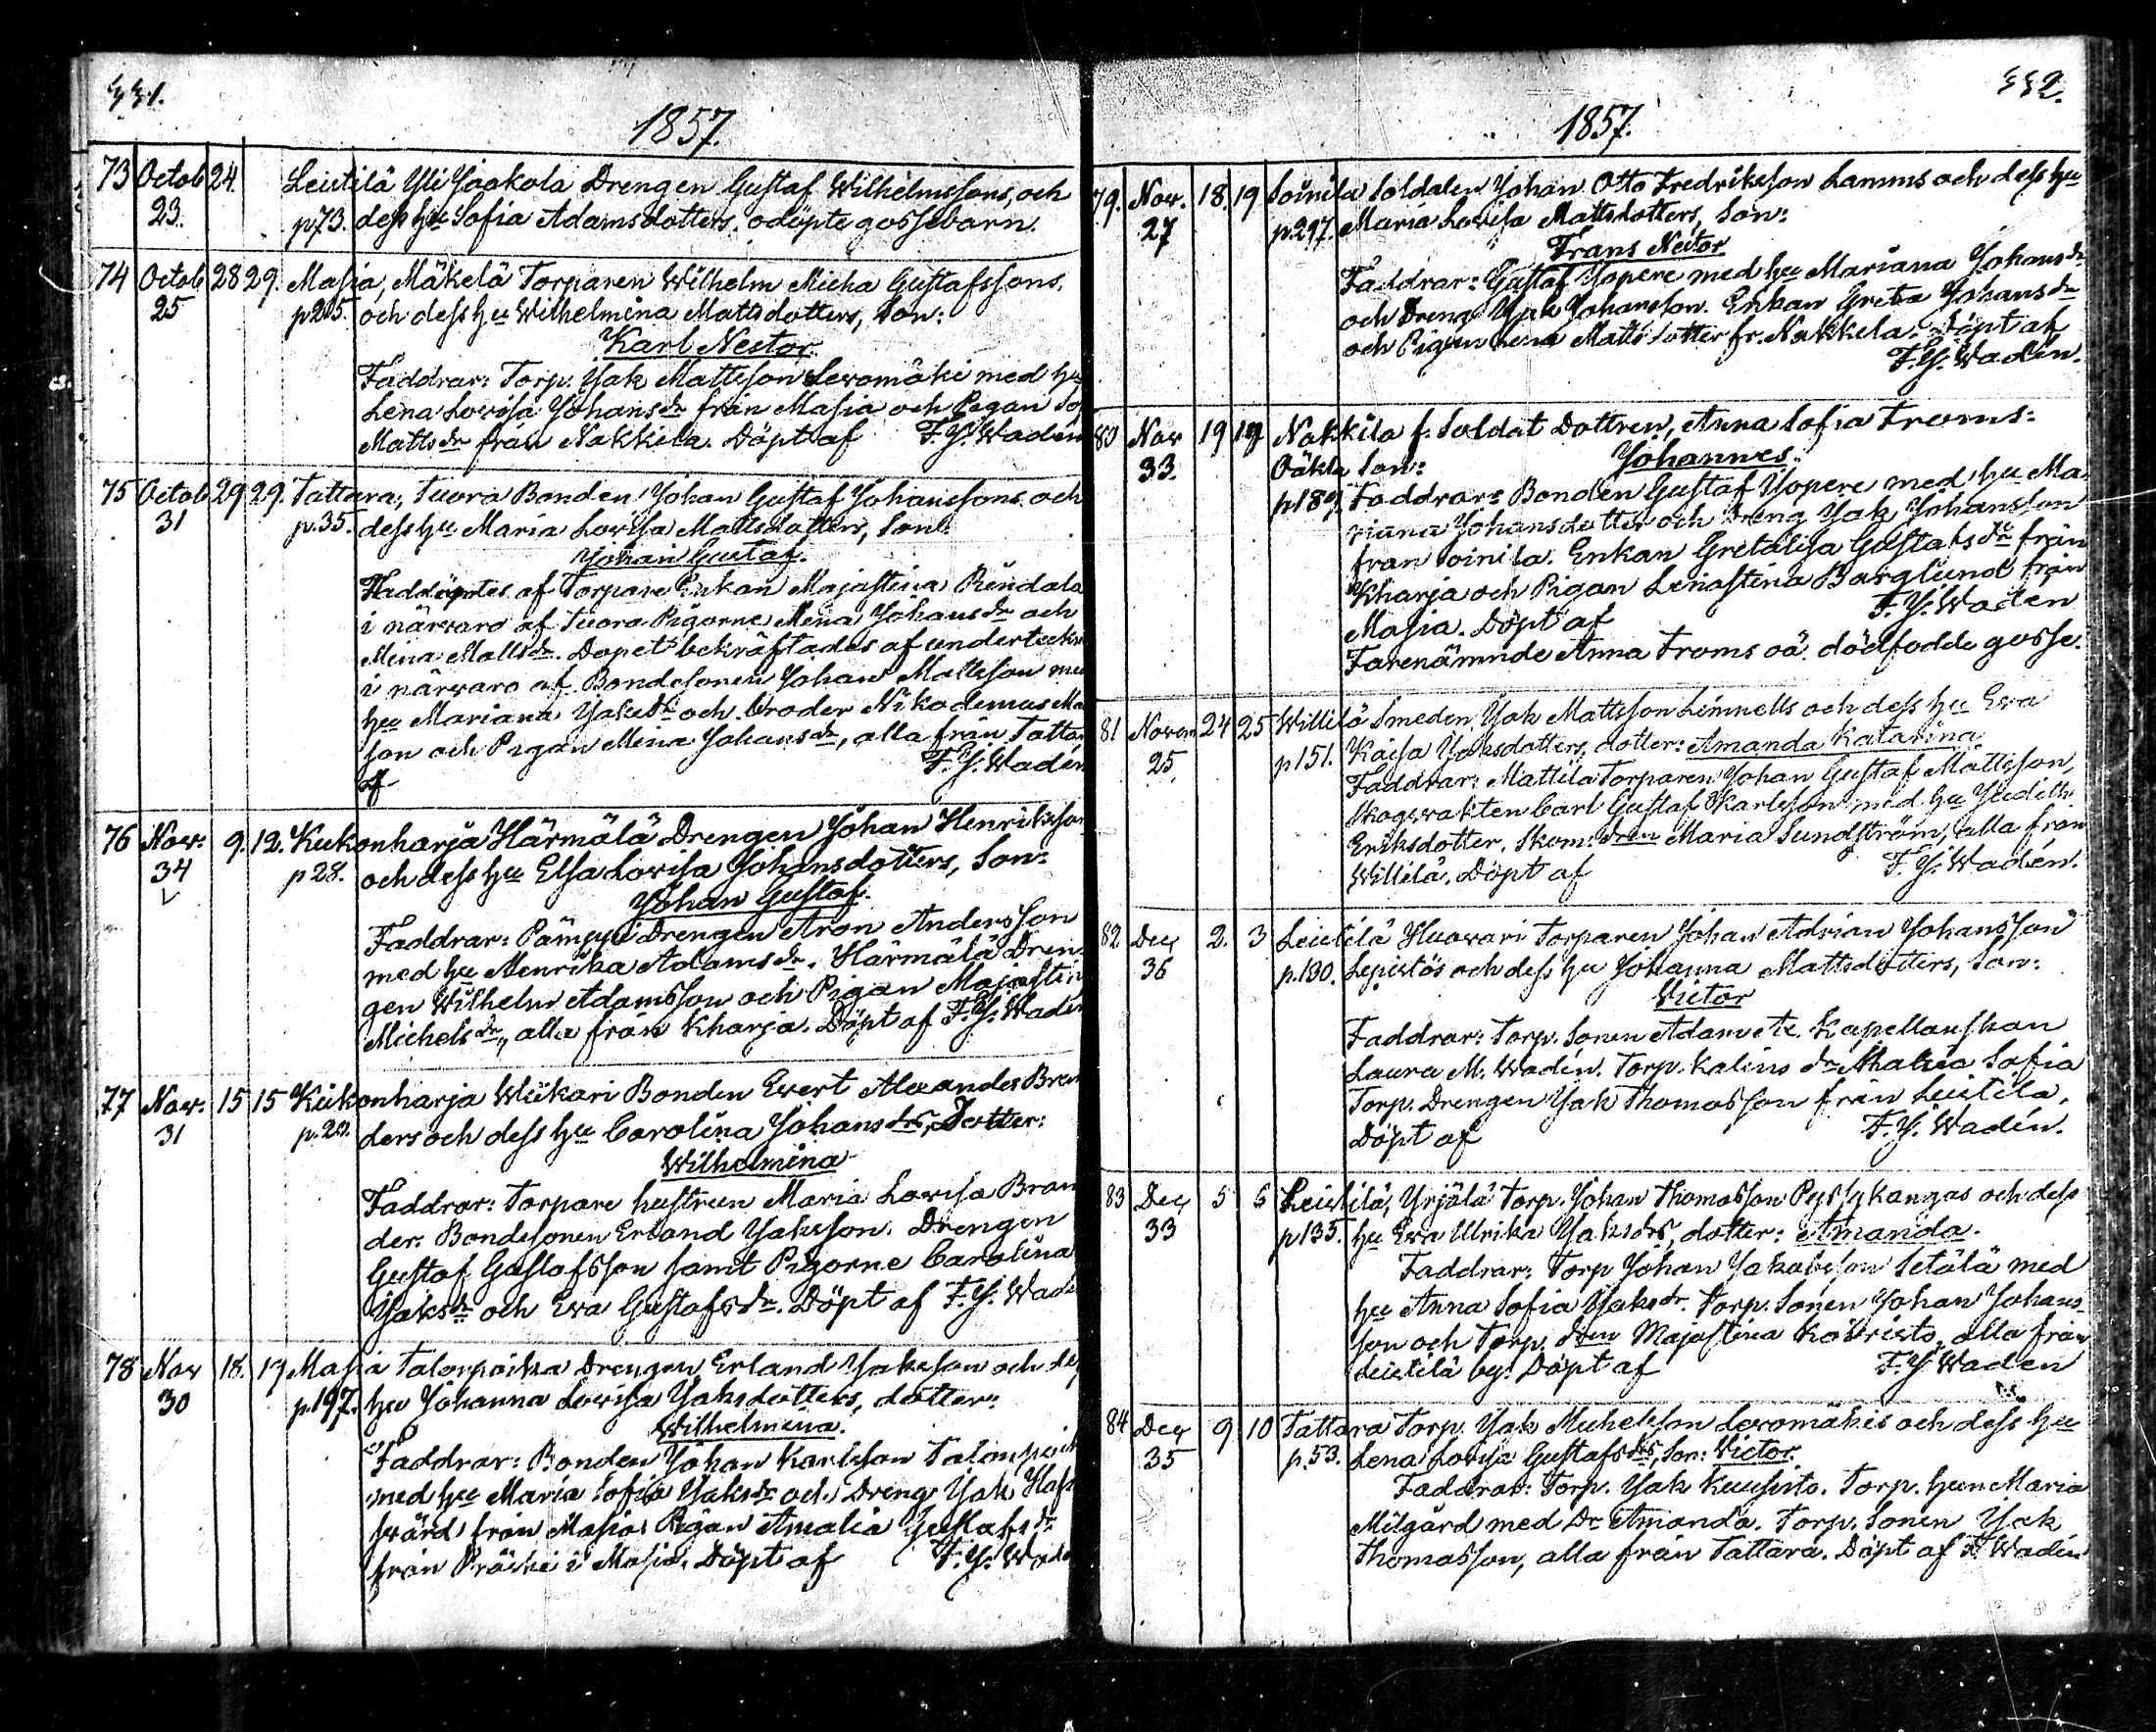 551.
1857.
73 Octob 24. Leistilä Yli Jaakola Drengen Gustaf Wilhelmssons, och
23. p73. dess hu Sofia Adamsdotters. odöpte gossebarn.
74 Octob 28 29. Masia, Mäkelä Torparen Wilhelm Micha Gustafssons,
25 p205. och dess hu Wilhelmina Mattsdotters, Son:
Karl Nestor
Faddrar: Torp. Jak Mattsson Leromäki med hu
Lena Lovisa Johansdr från Masia och Pigan Sof
Mattsdr från Nakkila. Döpt af F. J. Wadén
75 Octob 29 29. Tattara, Tuora Bonden Johan Gustaf Johanssons och
31 p.35. dess hu Maria Lovisa Mattsdotters, Son:
Johan Gustaf.
Haddöptes af Torpare Enkan Majastina Rindala
i närvaro af Tuora Pigorne Mina Johansdr och
Mina Mattsdr. Dopet bekräftades af undertecknad
i närvaro af Bondesonen Johan Mattsson med
hu Mariana Jaksdr och broder Nikodemus Ma
son och Pigan Mina Johansdr, alla från Tattara
af F. J. Wadén
76 Nov: 9. 12. Kukonharja Härmälä Drengen Johan Henriksson
34 p28. och dess hu Elsa Lovisa Johansdotters, Son:
Johan Gustaf.
Faddrar: Pämppi Drengen Aron Andersson
med hu Henrika Adamsdr. Härmälä Dren-
gen Wilhelm Adamsson och Pigan Majastin
Michelsdr, alla från Kharja. Döpt af F. J. Wadén
77 Nov: 15 15 Kukonharja Wiikari Bonden Evert Alexander Bran
31 p.20. ders och dess hu Carolina Johansdrs, Dotter:
Wilhelmina
Faddrar: Torpare hustrun Maria Lovisa Bran
der. Bondesonen Erland Jaksson. Drengen
Gustaf Gustafsson samt Pigorne Carolina
Jaksdr och Eva Gustafsdr. Döpt af F. J. Wadé
78 Nov 18. 19 Masia Talonpoika Drengen Erland Jaksson och dess
30 p197. hu Johanna Lovisa Jaksdotters, dotter:
Wilhelmina.
Faddrar: Bonden Johan Karlsson Talonpoik
med hu Maria Sofia Jaksdr och Dreng Jak Haf
svärd från Masia Pigan Amalia Gustafsdr
från Präski i Masia. Döpt af F. J. Wadé
552.
1857.
79. Nov. 18. 19 Soinila Soldaten Johan Otto Fredriksson Lamms och dess hu
27 p.297. Maria Lovisa Mattsdotters, Son:
Frans Nestor
Faddrar: Gustaf Yopere med hu Mariana Johansdr
och Dreng Jak Johansson. Enkan Greta Johansdr
och Pigan Lena Mattsdotter fr. Nakkila. Döpt af
F. J. Wadén.
80 Nov 19 19 Nakkila f. Soldat Dottren, Anna Sofia Froms:
33. Oäkta Son: Johannes.
p189. Faddrar: Bonden Gustaf Yopere med hu Ma-
riana Johansdotter och Dreng Jak Johansson
från Soinila. Enkan Gretalisa Gustafsdr från
Kharja och Pigan Lenastina Barglund från
Masia. Döpt af F. J. Wadén
Förenämnde Anna Froms oä. dödfödde gosse.
81 Novem 24 25 Willilä Smeden Jak Mattsson Limnells och dess hu Eva
25. p151. Kaisa Jaksdotters, dotter: Amanda Katarina.
Faddrar: Mattila Torparen Johan Gustaf Mattsson,
Skogsvakten Carl Gustaf Karlsson med hu Judith
Eriksdotter. Skom: dren Maria Sundström, alla från
Willilä. Döpt af F. J. Wadén.
82 Dec 2. 3 Leistilä Huovari Torparen Johan Adrian Johansson
36 p.130. Lepistös och dess hu Johanna Mattsdotters, Son:
Victor
Faddrar: Torp. Sonen Adam Kapellanskan
Laura M. Wadén. Torp. Kalins dr Maria Sofia
Torp. Drengen Jak Thomasson från Leistilä.
Döpt af F. J. Wadén.
83 Dec 5 6 Leistilä, Yrjälä Torp. Johan Thomasson Pyssykangas och dess
33 p135. hu Eva Ulrika Jaksdrs, dotter: Amanda.
Faddrar: Torp Johan Jakobsson Setälä med
hu Anna Sofia Jaksdr. Torp. Sonen Johan Johans-
son och Torp. dren Majastina Koivisto, alla från
Leistilä by. Döpt af F. J. Wadén
84 Dec 9 10 Tattara Torp. Jak Michelsson Leromäkis och dess hu
35 p.53. Lena Lovisa Gustafsdrs, Son: Victor.
Faddrar: Torp. Jak Kuusisto. Torp. hun Maria
Milgård med Dr Amanda. Torp. Sonen Jak
Thomasson, alla från Tattara. Döpt af F. Wadén